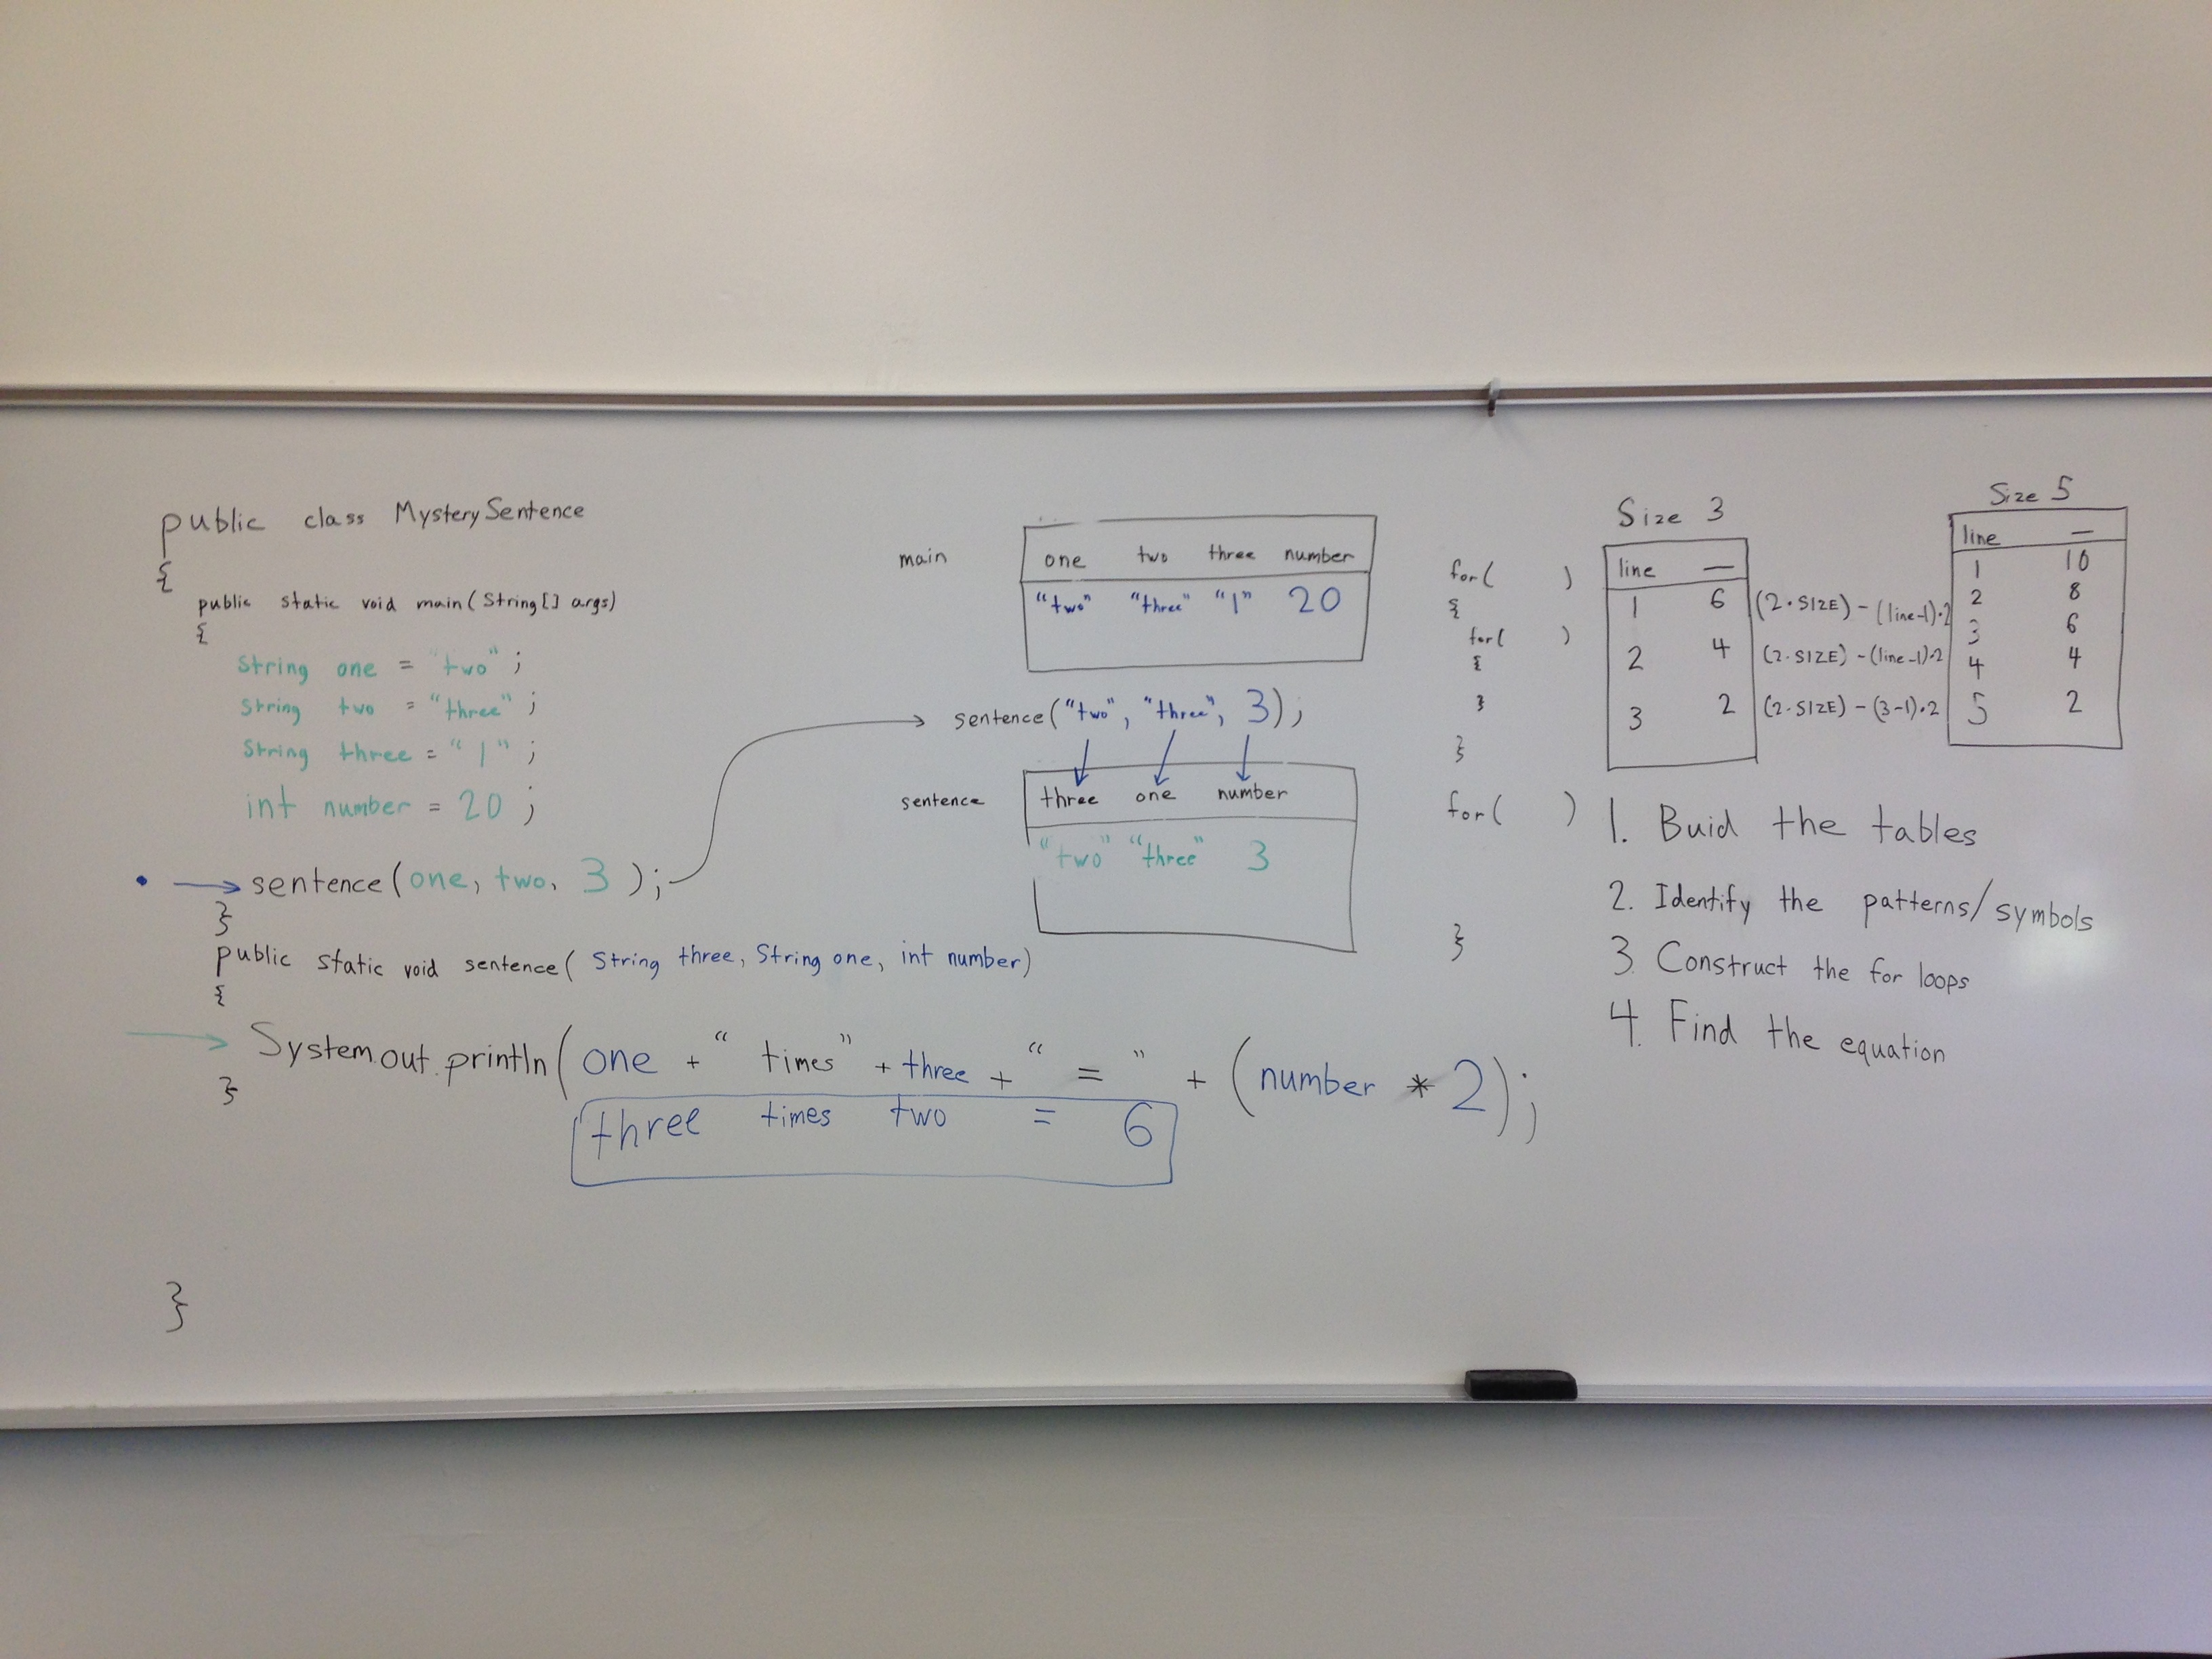 public class MysterySentence
{
public static void main(String[] args)
{
String one = "two";
String two = "three";
String three = "1";
int number = 20;
sentence(one, two, 3);
}
public static void sentence(String three, String one, int number)
{
System.out.println(one + " times" + three + " = " + (number * 2);
}
three times two = 6
}
main
one two three number
"two" "three" "1" 20
sentence("two", "three", 3);
sentence
three one number
"two" "three" 3
for( )
{
for( )
{
}
}
for( )
}
Size 3
line —
1 6 (2·SIZE)-(line-1)·2
2 4 (2·SIZE)-(line-1)·2
3 2 (2·SIZE)-(3-1)·2
Size 5
line —
1 10
2 8
3 6
4 4
5 2
1. Buid the tables
2. Identify the patterns/symbols
3. Construct the for loops
4. Find the equation